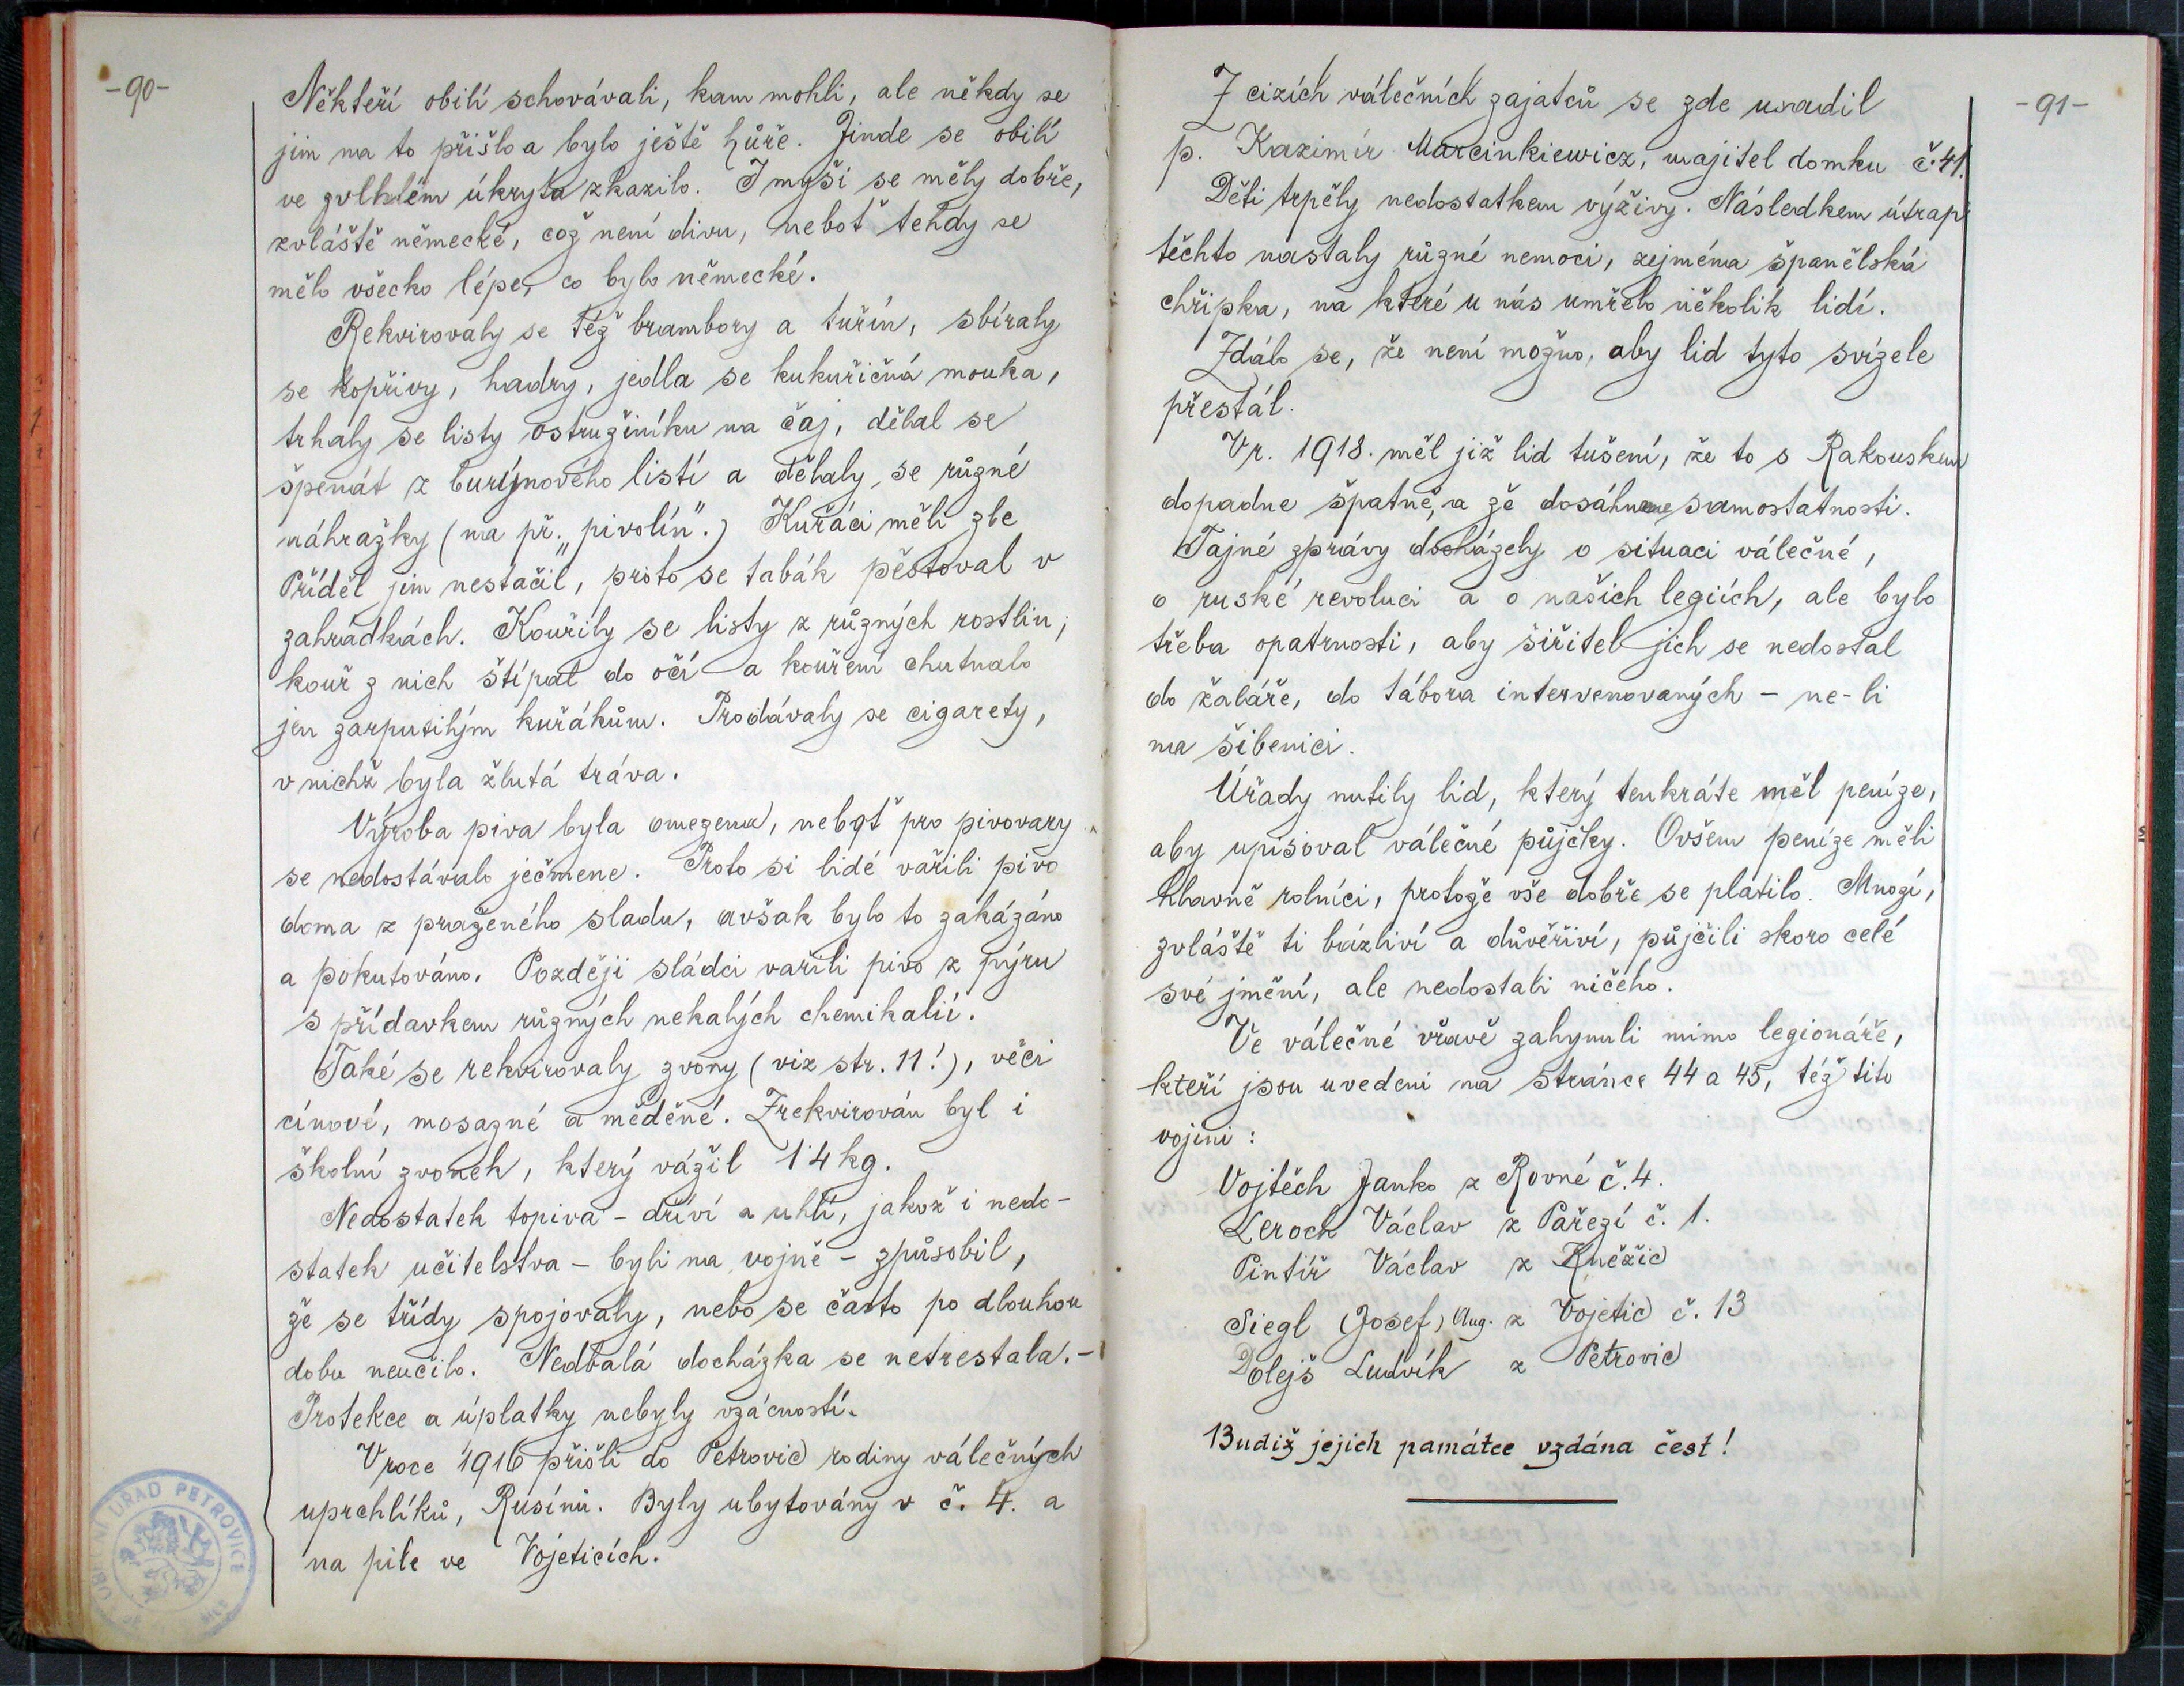 -90-
Někteří obilí schovávali, kam mohli, ale někdy se
jim na to přišlo a bylo ještě hůře. Jinde se obilí
ve zvlhlém úkrytu zkazilo. I myši se měly dobře,
zvláště německé, což není divu, neboť tehdy se
mělo všecko lépe, co bylo německé.
Rekvirovaly se též brambory a tuřín, sbíraly
se kopřivy, hadry, jedla se kukuřičná mouka,
trhaly se listy ostružiníku na čaj, dělal se
špenát z burýnového listí a dělaly se různé
náhražky (na př. „pivolín".) Kuřáci měli zle
Příděl jim nestačil, proto se tabák pěstoval v
zahrádkách. Kouřily se listy z různých rostlin;
kouř z nich štípal do očí a kouření chutnalo
jen zarputilým kuřákům. Prodávaly se cigarety,
v nichž byla žlutá tráva.
Výroba piva byla omezena, neboť pro pivovary
se nedostávalo ječmene. Proto si lidé vařili pivo
doma z praženého sladu, avšak bylo to zakázáno
a pokutováno. Později sládci vařili pivo z pýru
s přídavkem různých nekalých chemikalií.
Také se rekvirovaly zvony (viz str. 11!), věci
cínové, mosazné a měděné. Zrekvirován byl i
školní zvonek, který vážil 14 kg.
Nedostatek topiva - dříví a uhlí, jakož i nedo-
statek učitelstva - byli na vojně - způsobil,
že se třídy spojovaly, nebo se často po dlouhou
dobu neučilo. Nedbalá docházka se netrestala. -
Protekce a úplatky nebyly vzácností.
V roce 1916 přišli do Petrovic rodiny válečných
uprchlíků, Rusínů. Byly ubytovány v č. 4. a
na pile ve Vojeticích.
OBECNÍ ÚŘAD PETROVICE
-91-
Z cizích válečních zajatců se zde usadil
p. Kazimír Marcinkiewicz, majitel domku č. 41.
Děti trpěly nedostatkem výživy. Následkem útrap
těchto nastaly různé nemoci, zejména španělská
chřipka, na které u nás umřelo několik lidí.
Zdálo se, že není možno, aby lid tyto svízele
přestál.
V r. 1918. měl již lid tušení, že to s Rakouskem
dopadne špatně, a že dosáhneme samostatnosti.
Tajné zprávy docházely o situaci válečné,
o ruské revoluci a o našich legiích, ale bylo
třeba opatrnosti, aby šiřitel jich se nedostal
do žaláře, do tábora intervenovaných - ne-li
na šibenici.
Úřady nutily lid, který tenkráte měl peníze,
aby upisoval válečné půjčky. Ovšem peníze měli
hlavně rolníci, protože vše dobře se platilo. Mnozí,
zvláště ti bázliví a důvěřiví, půjčili skoro celé
své jmění, ale nedostali ničeho.
Ve válečné vřavě zahynuli mimo legionáře,
kteří jsou uvedeni na stránce 44 a 45, též tito
vojíni:
Vojtěch Janko z Rovné č. 4.
Leroch Václav z Pařezí č. 1.
Pintíř Václav z Kněžic
Siegl (Josef) Aug. z Vojetic č. 13
Dolejš Ludvík z Petrovic
Budiž jejich památce vzdána čest!